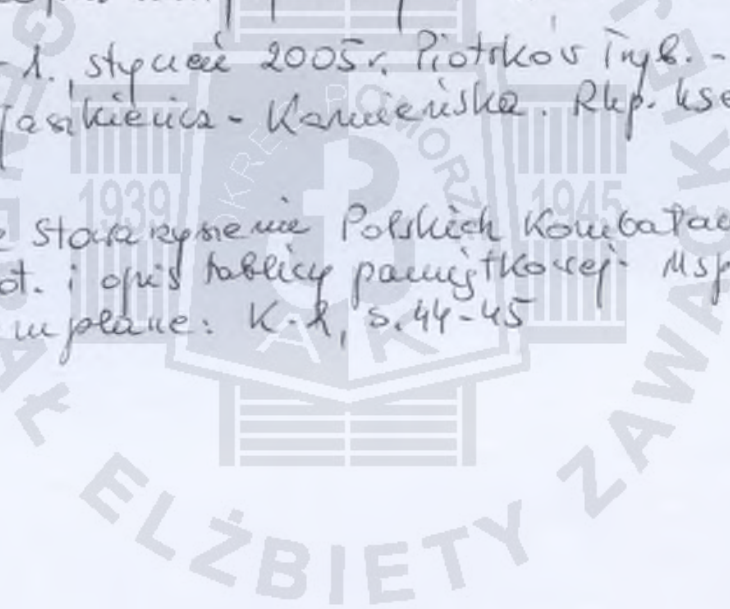 -1. styczeń 2005r. Piotrków Tryb. -
Jaszkiewicz - Kamieńska. Rkp. kse
Stowarzyszenie Polskich Kombatan
ot. i opis tablicy pamiątkowej. Msp
wpłane: K. 2, s. 44-45
OKRĘG POMORZE
1939
1945
AK
ELŻBIETY ZAWACKIE